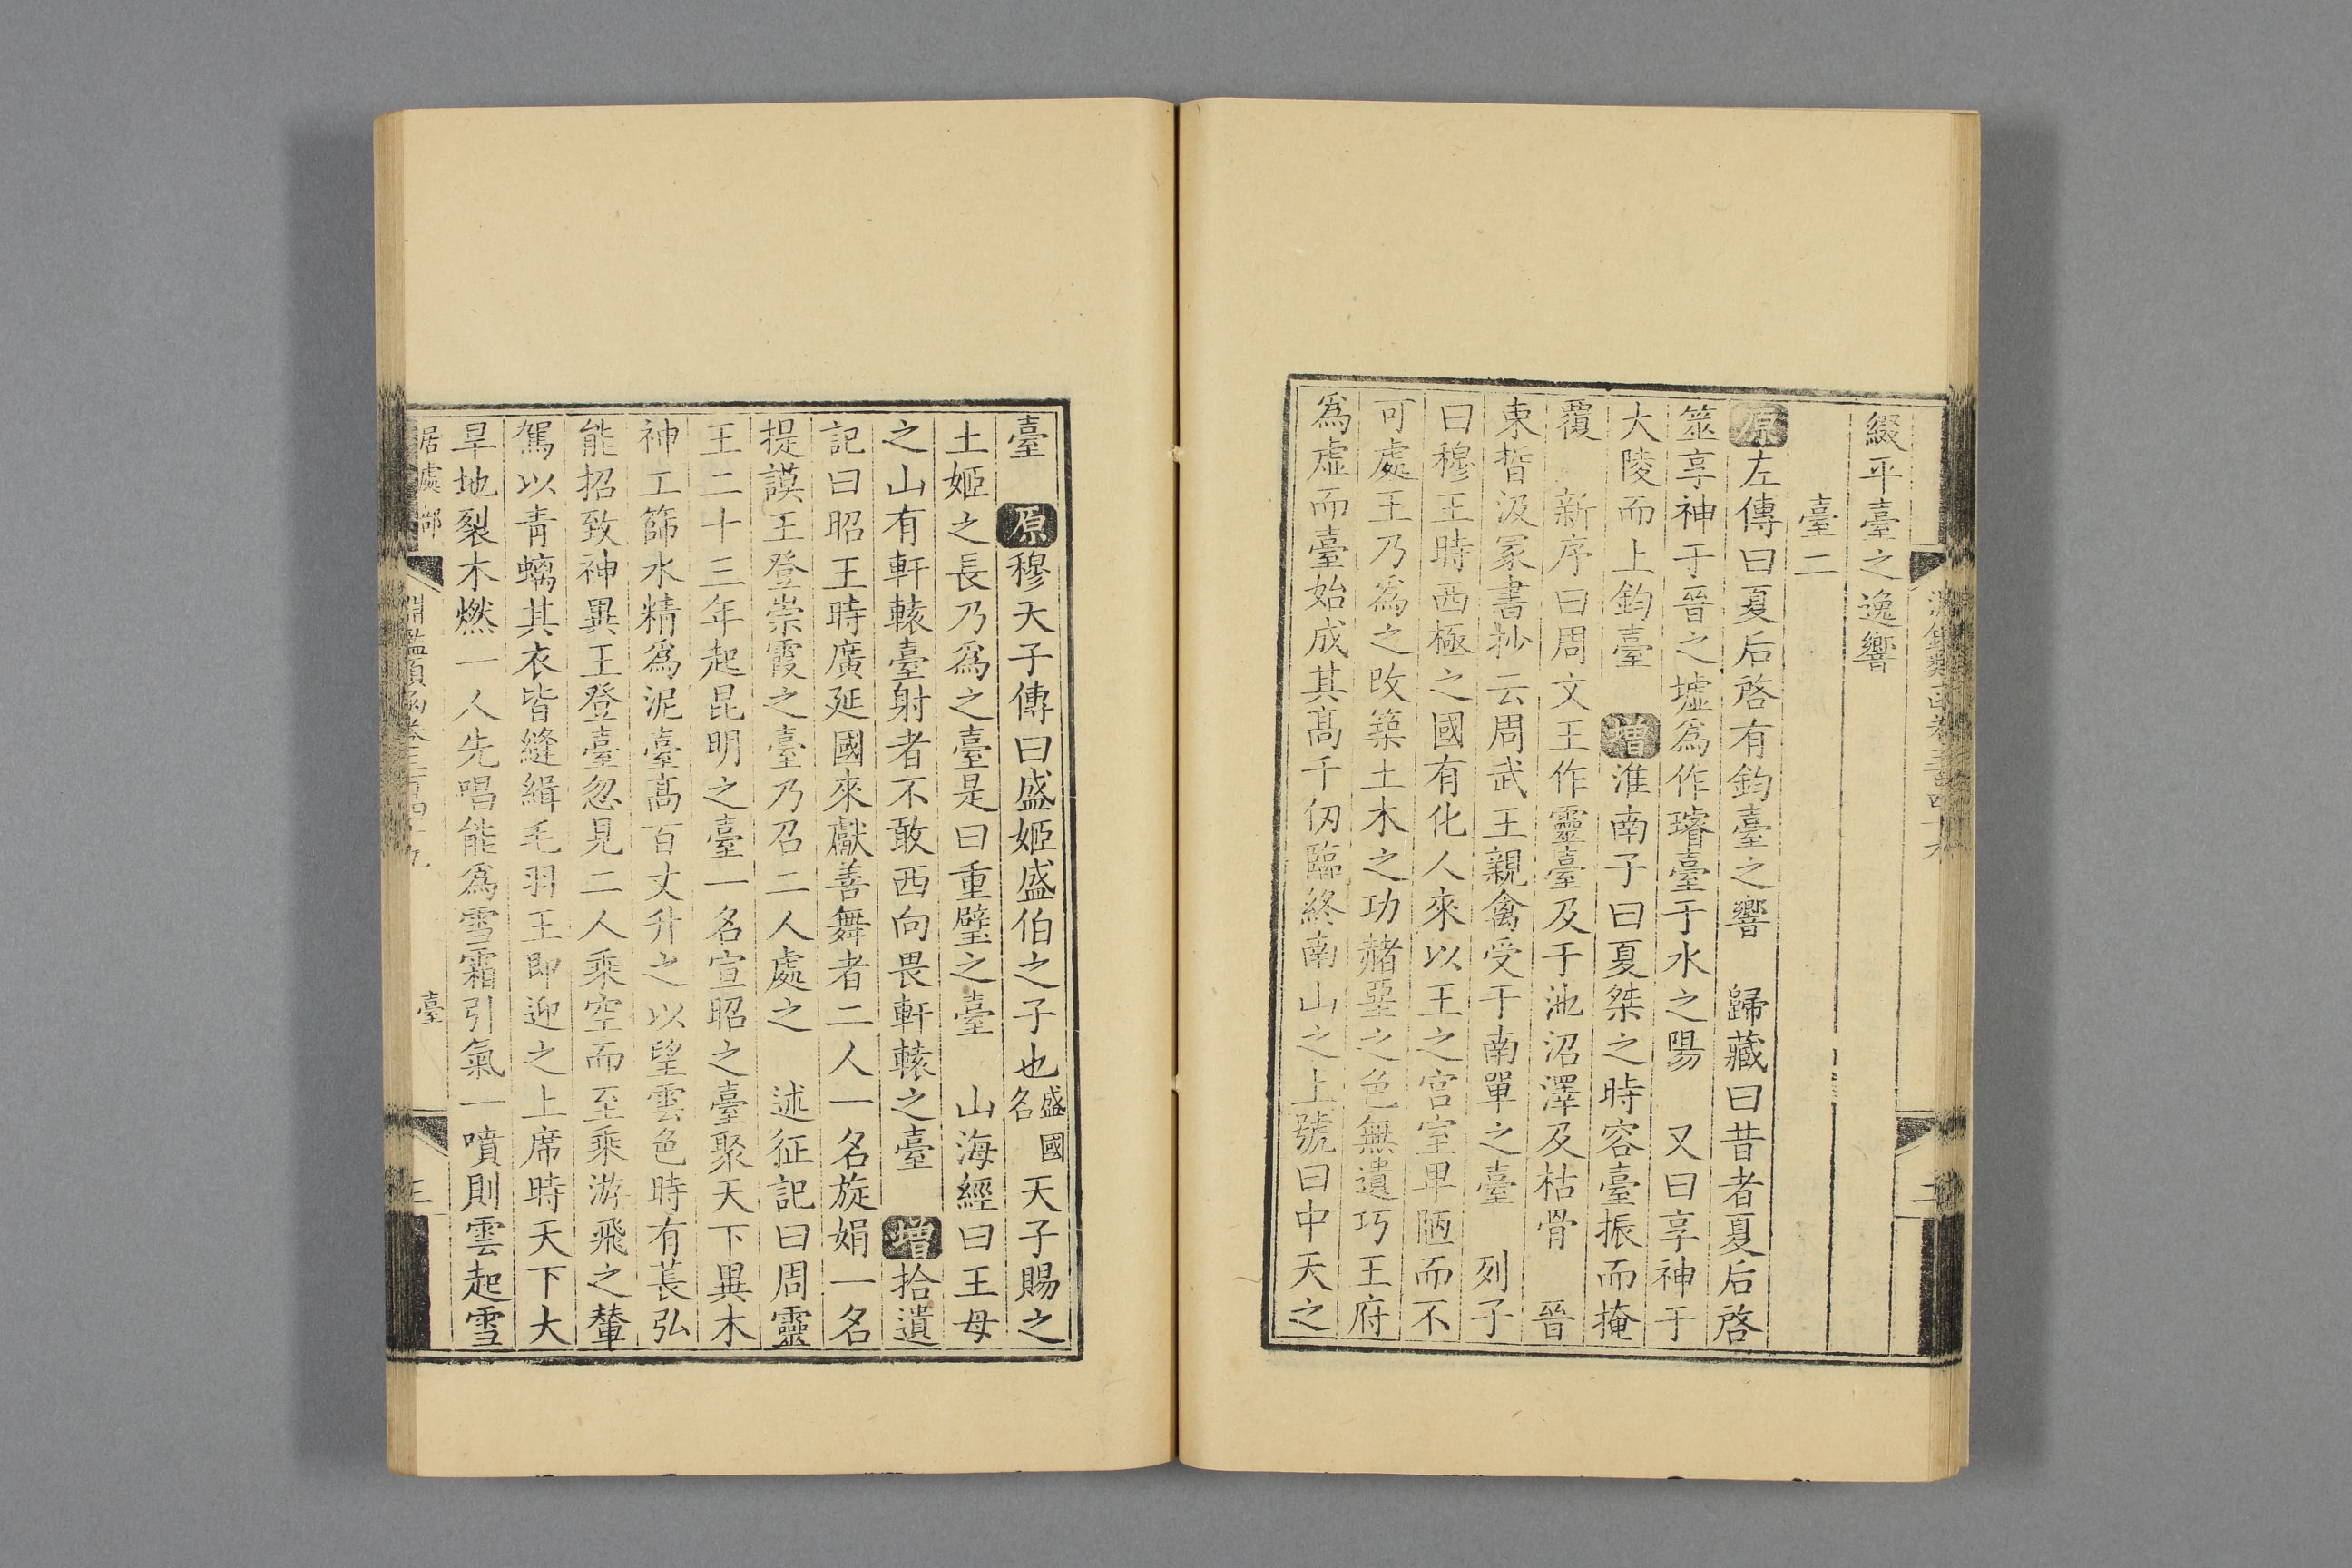 綴平臺之逸響
臺二
原左傳曰夏后啓有鈞臺之響 歸藏曰昔者夏后啓
筮享神于晉之墟爲作璿臺于水之陽 又曰享神于
大陵而上鈞臺 增淮南子曰夏桀之時容臺振而掩
覆 新序曰周文王作靈臺及于池沼澤及枯骨 晉
束晳汲冢書抄云周武王親禽受于南單之臺 列子
曰穆王時西極之國有化人來以王之宮室卑陋而不
可處王乃爲之改築土木之功赭堊之色無遺巧王府
爲虛而臺始成其髙千仞臨終南山之上號曰中天之
臺 原穆天子傳曰盛姬盛伯之子也盛國名天子賜之
土姬之長乃爲之臺是曰重璧之臺 山海經曰王母
之山有軒轅臺射者不敢西向畏軒轅之臺 增拾遺
記曰昭王時廣延國來獻善舞者二人一名旋娟一名
提謨王登崇霞之臺乃召二人處之 述征記曰周靈
王二十三年起昆明之臺一名宣昭之臺聚天下異木
神工篩水精爲泥臺髙百丈升之以望雲色時有萇弘
能招致神異王登臺忽見二人乘空而至乘游飛之輦
駕以靑螭其衣皆縫緝毛羽王即迎之上席時天下大
旱地裂木燃一人先唱能爲雪霜引氣一噴則雲起雪
居處部 淵鑑類函卷三百四十九 臺 三